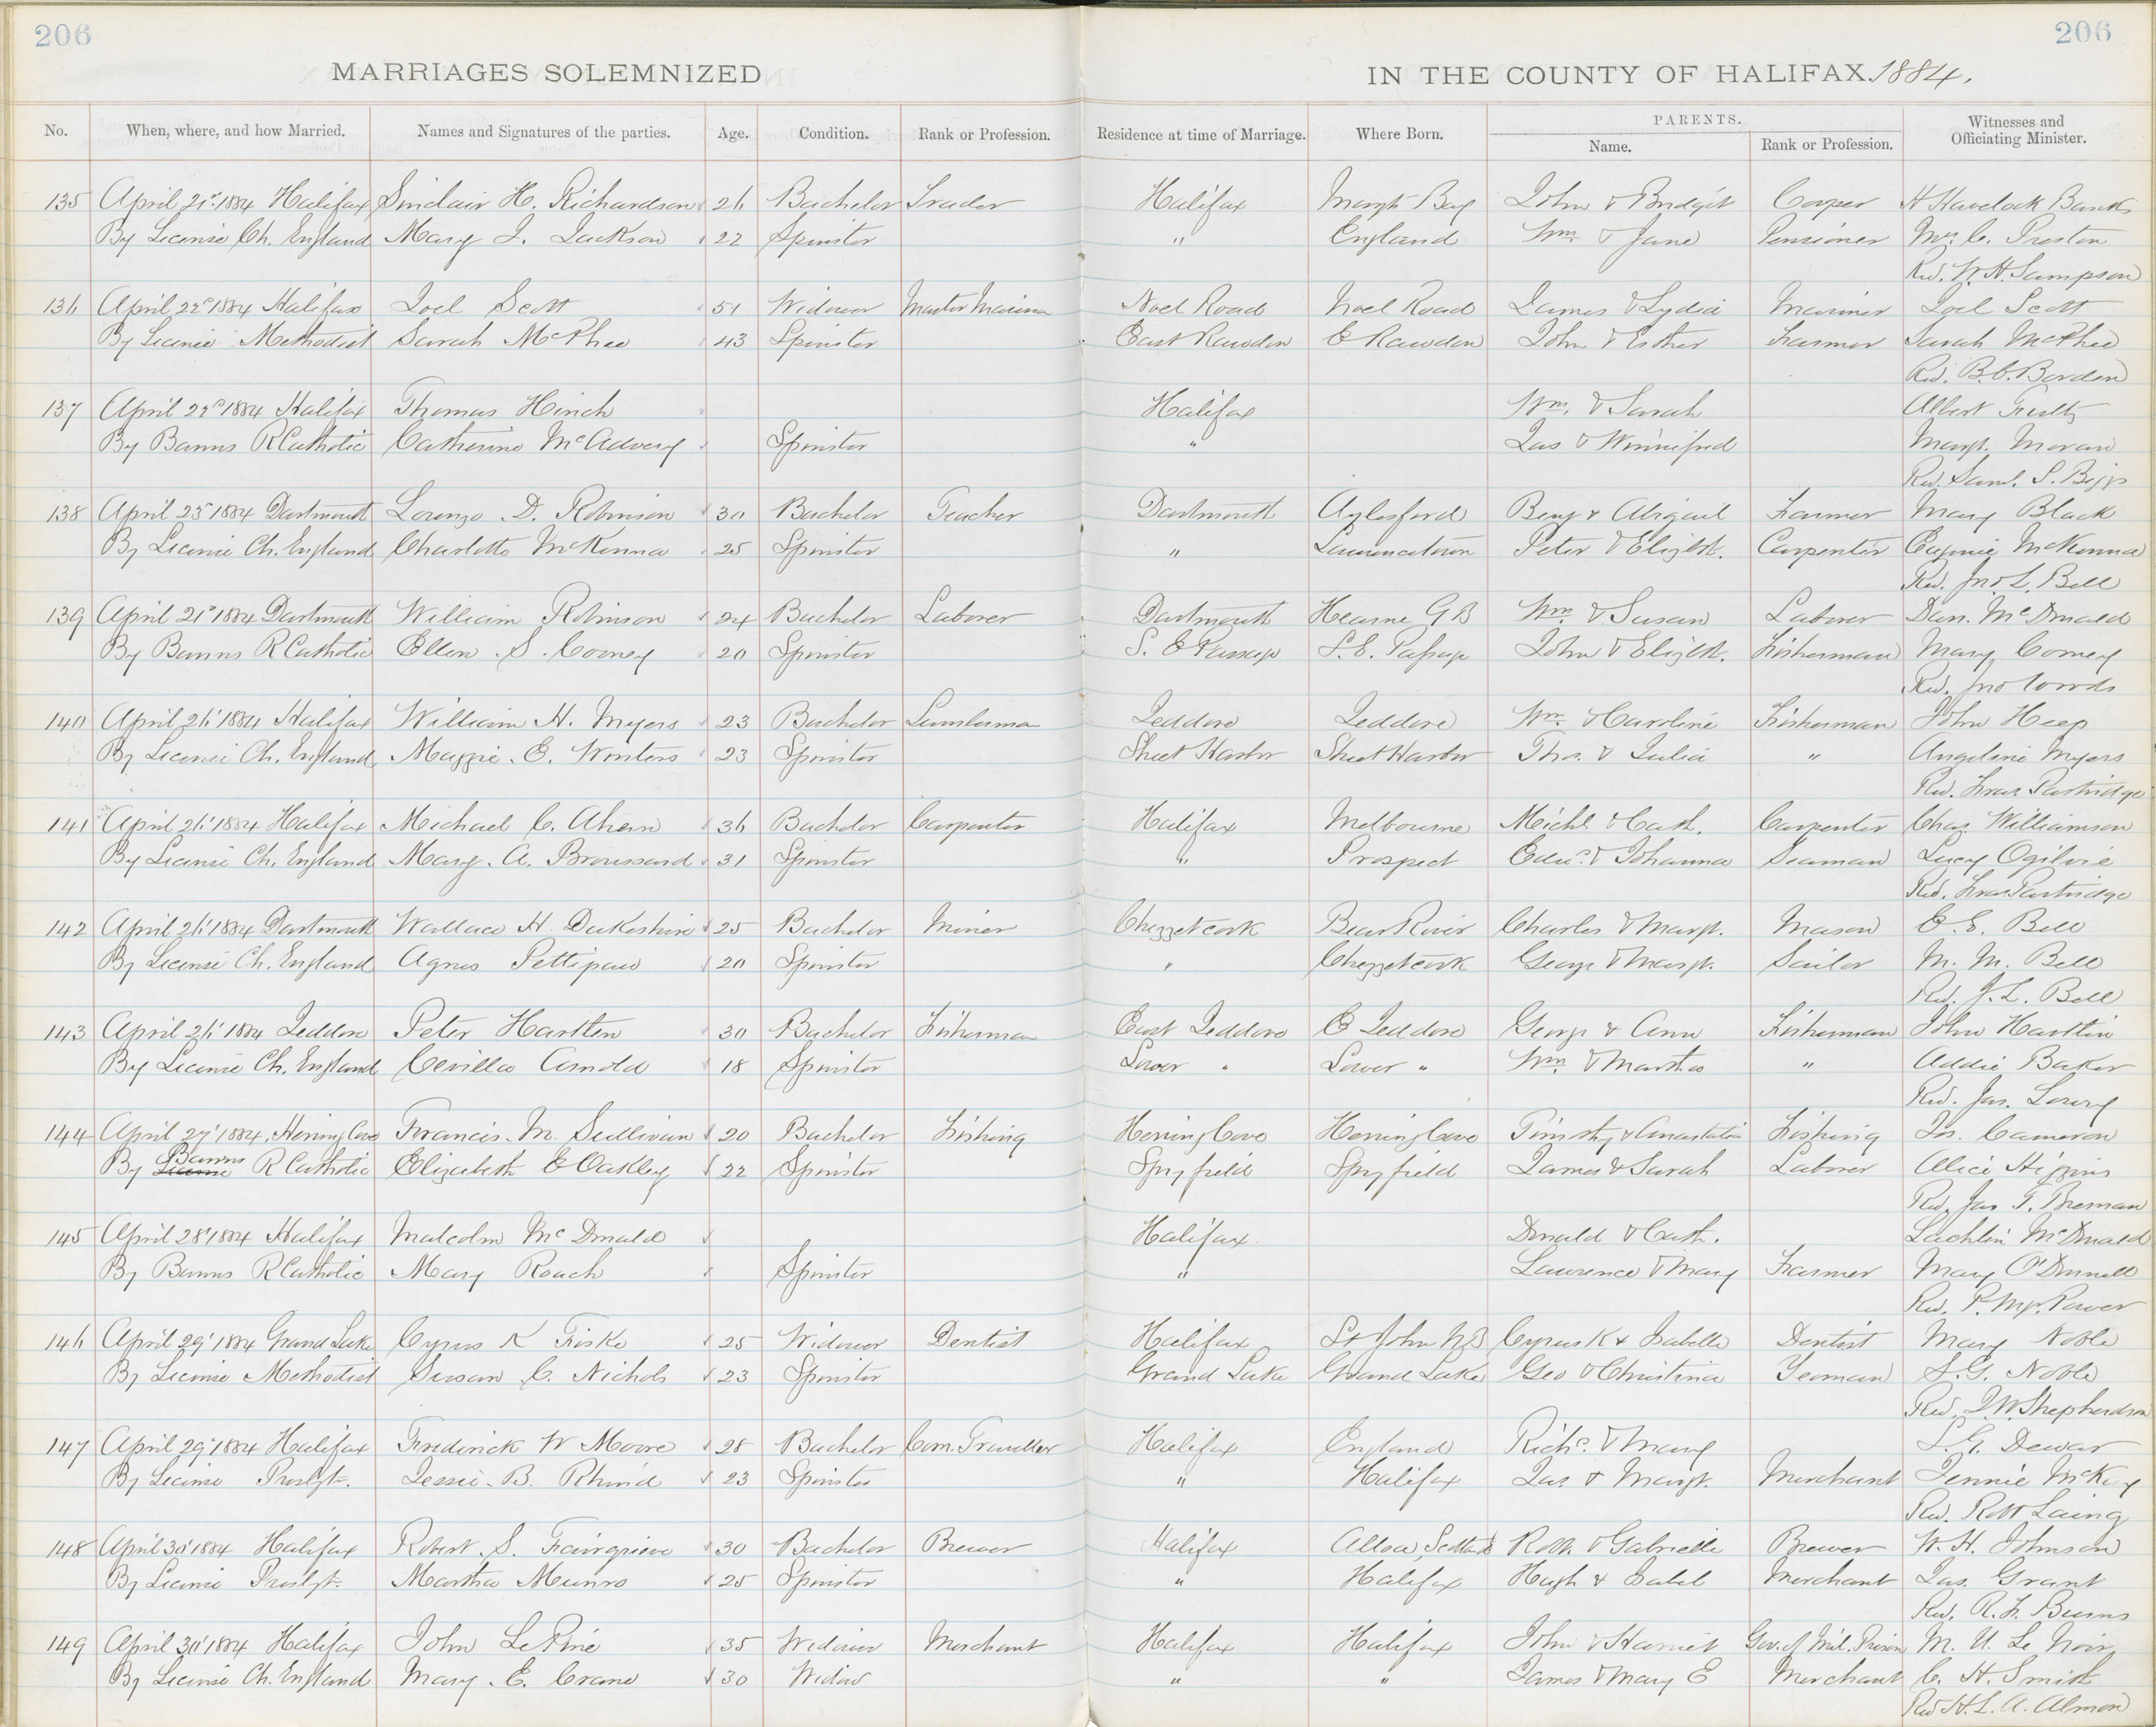 206
206
MARRIAGES SOLEMNIZED IN THE COUNTY OF HALIFAX 1884.
No. When, where, and how Married. Names and Signatures of the parties. Age. Condition. Rank or Profession. Residence at time of Marriage. Where Born. PARENTS. Name. Rank or Profession. Witnesses and Officiating Minister.
135 April 21st 1884 Halifax Sinclair H. Richardson 26 Bachelor Trader Halifax Margts Bay John & Bridgit Cooper H Havelock Banks
By License Ch. England Mary J. Jackson 22 Spinster " England Wm. & Jane Pensioner Mrs C. Preston
Rev. W. H. Sampson
136 April 22d 1884 Halifax Joel Scott 51 Widower Master Mariner Noel Road Noel Road James & Lydia Mariner Joel Scott
By License Methodist Sarah McPhee 43 Spinster East Rawdon E Rawdon John & Esther Farmer Sarah McPhee
Rev. B. C. Borden
137 April 22d 1884 Halifax Thomas Hinch Halifax Wm. & Sarah Albert
By Banns R Catholic Catherine McAdvery Spinster " Jas & Winnifred Margt. Moran
Rev. Saml. S. Biggs
138 April 23d 1884 Dartmouth Lorenzo D. Robinson 30 Bachelor Teacher Dartmouth Aylesford Benj & Abigail Farmer Mary Black
By License Ch. England Charlotte McKenna 25 Spinster " Lawrencetown Peter & Elizbt. Carpenter Eugenie McKenna
Rev. Jno L. Bell
139 April 21st 1884 Dartmouth William Robinson 24 Bachelor Laborer Dartmouth Hearne G B Wm. & Susan Laborer Dan. McDonald
By Banns R Catholic Ellen S. Corney 20 Spinster S. E Passage S. E. Passage John & Elizbt. Fisherman Mary Corney
Rev. Jno Woods
140 April 26' 1884 Halifax William H. Myers 23 Bachelor Lumberman Jeddore Jeddore Wm. & Caroline Fisherman John Heep
By License Ch. England Maggie E. Winters 23 Spinster Sheet Harbor Sheet Harbor Thos. & Julia " Angeline Myers
Rev. Fras. Partridge
141 April 26' 1884 Halifax Michael C. Ahern 36 Bachelor Carpenter Halifax Melbourne Michl. & Cath. Carpenter Chas. Williamson
By License Ch. England Mary A. Broussard 31 Spinster " Prospect Edwd. & Johanna Seaman Lucy Ogilvie
Rev. Fras Partridge
142 April 26' 1884 Dartmouth Wallace H. Dukeshire 25 Bachelor Miner Chezzetcook Bear River Charles & Margt. Mason E. E. Bell
By License Ch. England Agnes Pettipaw 20 Spinster " Chezzetcook George & Margt. Sailor M. M. Bell
Rev. J. L. Bell
143 April 26' 1884 Jeddore Peter Hartlen 30 Bachelor Fisherman East Jeddore E Jeddore George & Ann Fisherman John Hartlin
By License Ch. England Cevilla Arnold 18 Spinster Lower " Lower " Wm. & Martha " Addie Baker
Rev. Jas. Lowry
144 April 27' 1884, Herring Cove Francis M. Sullivan 20 Bachelor Fishing Herring Cove Herring Cove Timothy & Anastatia Fishing Jn. Cameron
By License Banns R Catholic Elizabeth E Oakley 22 Spinster Spryfield Spryfield James & Sarah Laborer Alice Higgins
Rev. Jas T. Brennan
145 April 28' 1884 Halifax Malcolm McDonald Halifax Donald & Cath. Lachlin McDonald
By Banns R Catholic Mary Roach Spinster " Lawrence & Mary Farmer Mary O'Donnell
Rev. P. Mgr. Power
146 April 29' 1884 Grand Lake Cyrus K Fiske 25 Widower Dentist Halifax St John N B Cyrus K & Isabella Dentist Mary Noble
By License Methodist Susan C. Nichols 23 Spinster Grand Lake Grand Lake Geo & Christina Yeoman S. G. Noble
Rev. J. W. Shepherdson
147 April 29' 1884 Halifax Frederick W Moore 28 Bachelor Com. Traveller Halifax England Richd. & Mary S. G. Dewar
By License Presbyt. Jessie B. Rhind 23 Spinster " Halifax Jas. & Margt. Merchant Jennie McKay
Rev. Robt Laing
148 April 30' 1884 Halifax Robert S. Fairgrieve 30 Bachelor Brewer Halifax Alloa, Scotland Robt. & Gabrielle Brewer W. H. Johnson
By License Presbyt. Martha Munro 25 Spinster " Halifax Hugh & Isabel Merchant Jas. Grant
Rev. R. F. Burns
149 April 30' 1884 Halifax John LePine 35 Widower Merchant Halifax Halifax John & Harriet Gov. of Mil. Prison M. U. Le Noir
By License Ch. England Mary E. Crane 30 Widow " " James & Mary E Merchant C. H. Smith
Rev H. L. A. Almon